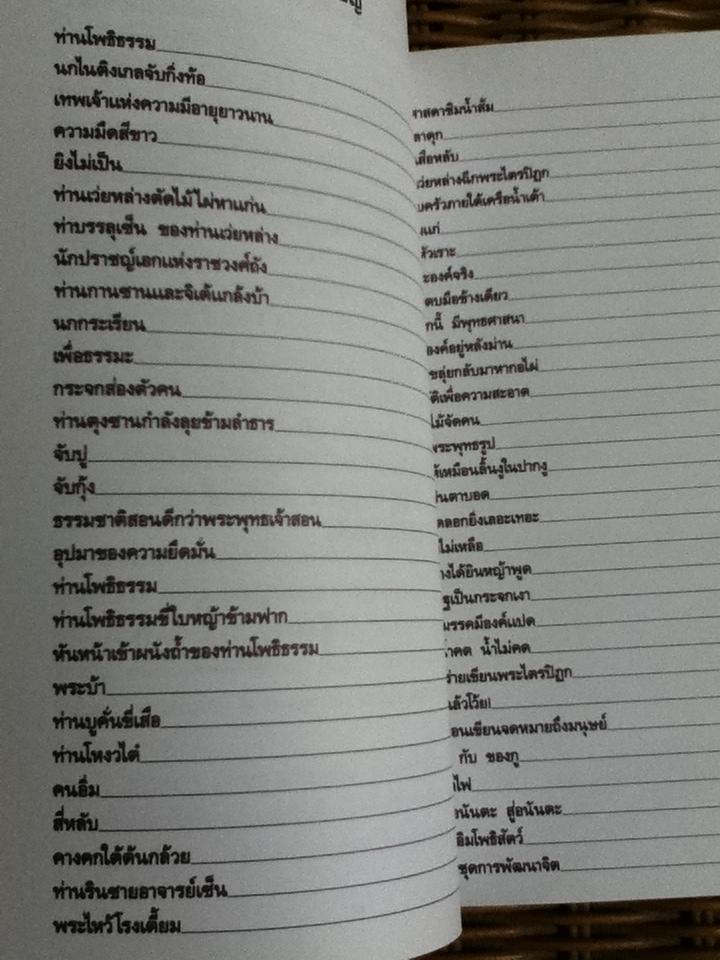 ท่านโพธิธรรม
นกไนติงเกลจับกิ่งท้อ
เทพเจ้าแห่งความมีอายุยาวนาน
ความมืดสีขาว
ยิงไม่เป็น
ท่านเว่ยหล่างตัดไม้ไผ่หาแก่น
ท่าบรรลุเซ็น ของท่านเว่ยหล่าง
นักปราชญ์เอกแห่งราชวงศ์ถัง
ท่านกานซานและจิเต้แกล้งบ้า
นกกระเรียน
เพื่อธรรมะ
กระจกส่องตัวคน
ท่านตุงซานกำลังลุยข้ามลำธาร
จับปู
จับกุ้ง
ธรรมชาติสอนดีกว่าพระพุทธเจ้าสอน
อุปมาของความยึดมั่น
ท่านโพธิธรรม
ท่านโพธิธรรมขี่ใบหญ้าข้ามฟาก
หันหน้าเข้าผนังถ้ำของท่านโพธิธรรม
พระบ้า
ท่านบูคั่นขี่เสือ
ท่านโหงวไต๋
คนอิ่ม
สี่หลับ
คางคกใต้ต้นกล้วย
ท่านรินซายอาจารย์เซ็น
พระไหว้โรงเตี้ยม
าสดาชิมน้ำส้ม
ลาตุก
เสือหลับ
เว่ยหล่างฉีกพระไตรปิฎก
บครัวภายใต้เครือน้ำเต้า
งแก่
หัวเราะ
ะองค์จริง
ตบมือข้างเดียว
กนี้ มีพุทธศาสนา
องค์อยู่หลังม่าน
ขลุ่ยกลับมาหากอไผ่
ัติเพื่อความสะอาด
ไม้จัดคน
พระพุทธรูป
ห้เหมือนลิ้นงูในปากงู
่นตาบอด
ดลอกยิ่งเลอะเทอะ
ไม่เหลือ
งได้ยินหญ้าพูด
ฐเป็นกระจกเงา
มรรคมีองค์แปด
้ำคด น้ำไม่คด
ร่ายเขียนพระไตรปิฎก
แล้วโว้ย!
อนเขียนจดหมายถึงมนุษย์
กับ ของกู
ไฟ
อนันตะ สู่อนันตะ
อิมโพธิสัตว์
ชุดการพัฒนาจิต